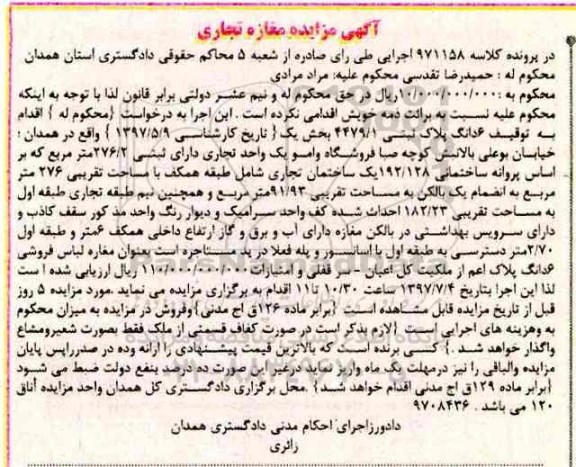 آگهی مزایده مغازه تجاری
در پرونده کلاسه ۹۷۱۱۵۸ اجرایی طی رای صادره از شعبه ۵ محاکم حقوقی دادگستری استان همدان
محکوم له : حمیدرضا تقدسی محکوم علیه: مراد مرادی
محکوم به :۱۰/۰۰۰/۰۰۰/۰۰۰ریال در حق محکوم له و نیم عشر دولتی برابر قانون لذا با توجه به اینکه
محکوم علیه نسبت به برائت ذمه خویش اقدامی نکرده است . این اجرا به درخواست {محکوم له } اقدام
به توقیف ۶دانگ پلاک ثبتی ۴۴۷۹/۱ بخش یک { تاریخ کارشناسی ۱۳۹۷/۵/۹ } واقع در همدان ؛
خیابان بوعلی بالاتبش کوچه صبا فروشگاه وامو یک واحد تجاری دارای ثبتی ۲۷۶/۲متر مربع که بر
اساس پروانه ساختمانی ۱۹۲/۱۲۸یک ساختمان تجاری شامل طبقه همکف با مساحت تقریبی ۲۷۶ متر
مربع به انضمام یک بالکن به مساحت تقریبی ۹۱/۹۳متر مربع و همچنین نیم طبقه تجاری طبقه اول
به مساحت تقریبی ۱۸۲/۲۳ احداث شده کف واحد سرامیک و دیوار رنگ واحد مذکور سقف کاذب و
دارای سرویس بهداشتی در بالکن مغازه دارای آب و برق و گاز ارتفاع داخلی همکف ۶متر و طبقه اول
۲/۷۰متر دسترسی به طبقه اول با آسانسور و پله فعلا در ید مستاجره است بعنوان مغازه لباس فروشی
۶دانگ پلاک اعم از ملکیت کل اعیان - سر قفلی و امتیازات ۱۱۰/۰۰۰/۰۰۰/۰۰۰ ریال ارزیابی شده است
لذا این اجرا بتاریخ ۱۳۹۷/۷/۴ ساعت ۱۰/۳۰ تا۱۱ اقدام به برگزاری مزایده می نماید .مورد مزایده ۵ روز
قبل از تاریخ مزایده قابل مشاهده است {برابر ماده ۱۲۶ق اج مدنی}وفروش در مزایده به میزان محکوم
به وهزینه های اجرایی است {لازم بذکر است در صورت کفاف قسمتی از ملک فقط بصورت شعیرومشاع
واگذار خواهد شد .} کسی برنده است که بالاترین قیمت پیشنهادی را ارائه وده در صدررا‌پس پایان
مزایده والباقی را نیز درمهلت یک ماه واریز نماید درغیر این صورت ده درصد بنفع دولت ضبط می شود
{برابر ماده ۱۲۹ق اج مدنی اقدام خواهد شد.} .محل برگزاری دادگستری کل همدان واحد مزایده اتاق
۱۲۰ می باشد . ۹۷۰۸۴۳۶
دادورزاجرای احکام مدنی دادگستری همدان
زائری